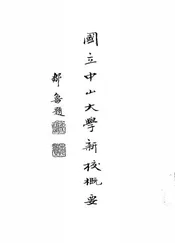 國立中山大學新校概要
鄒魯題